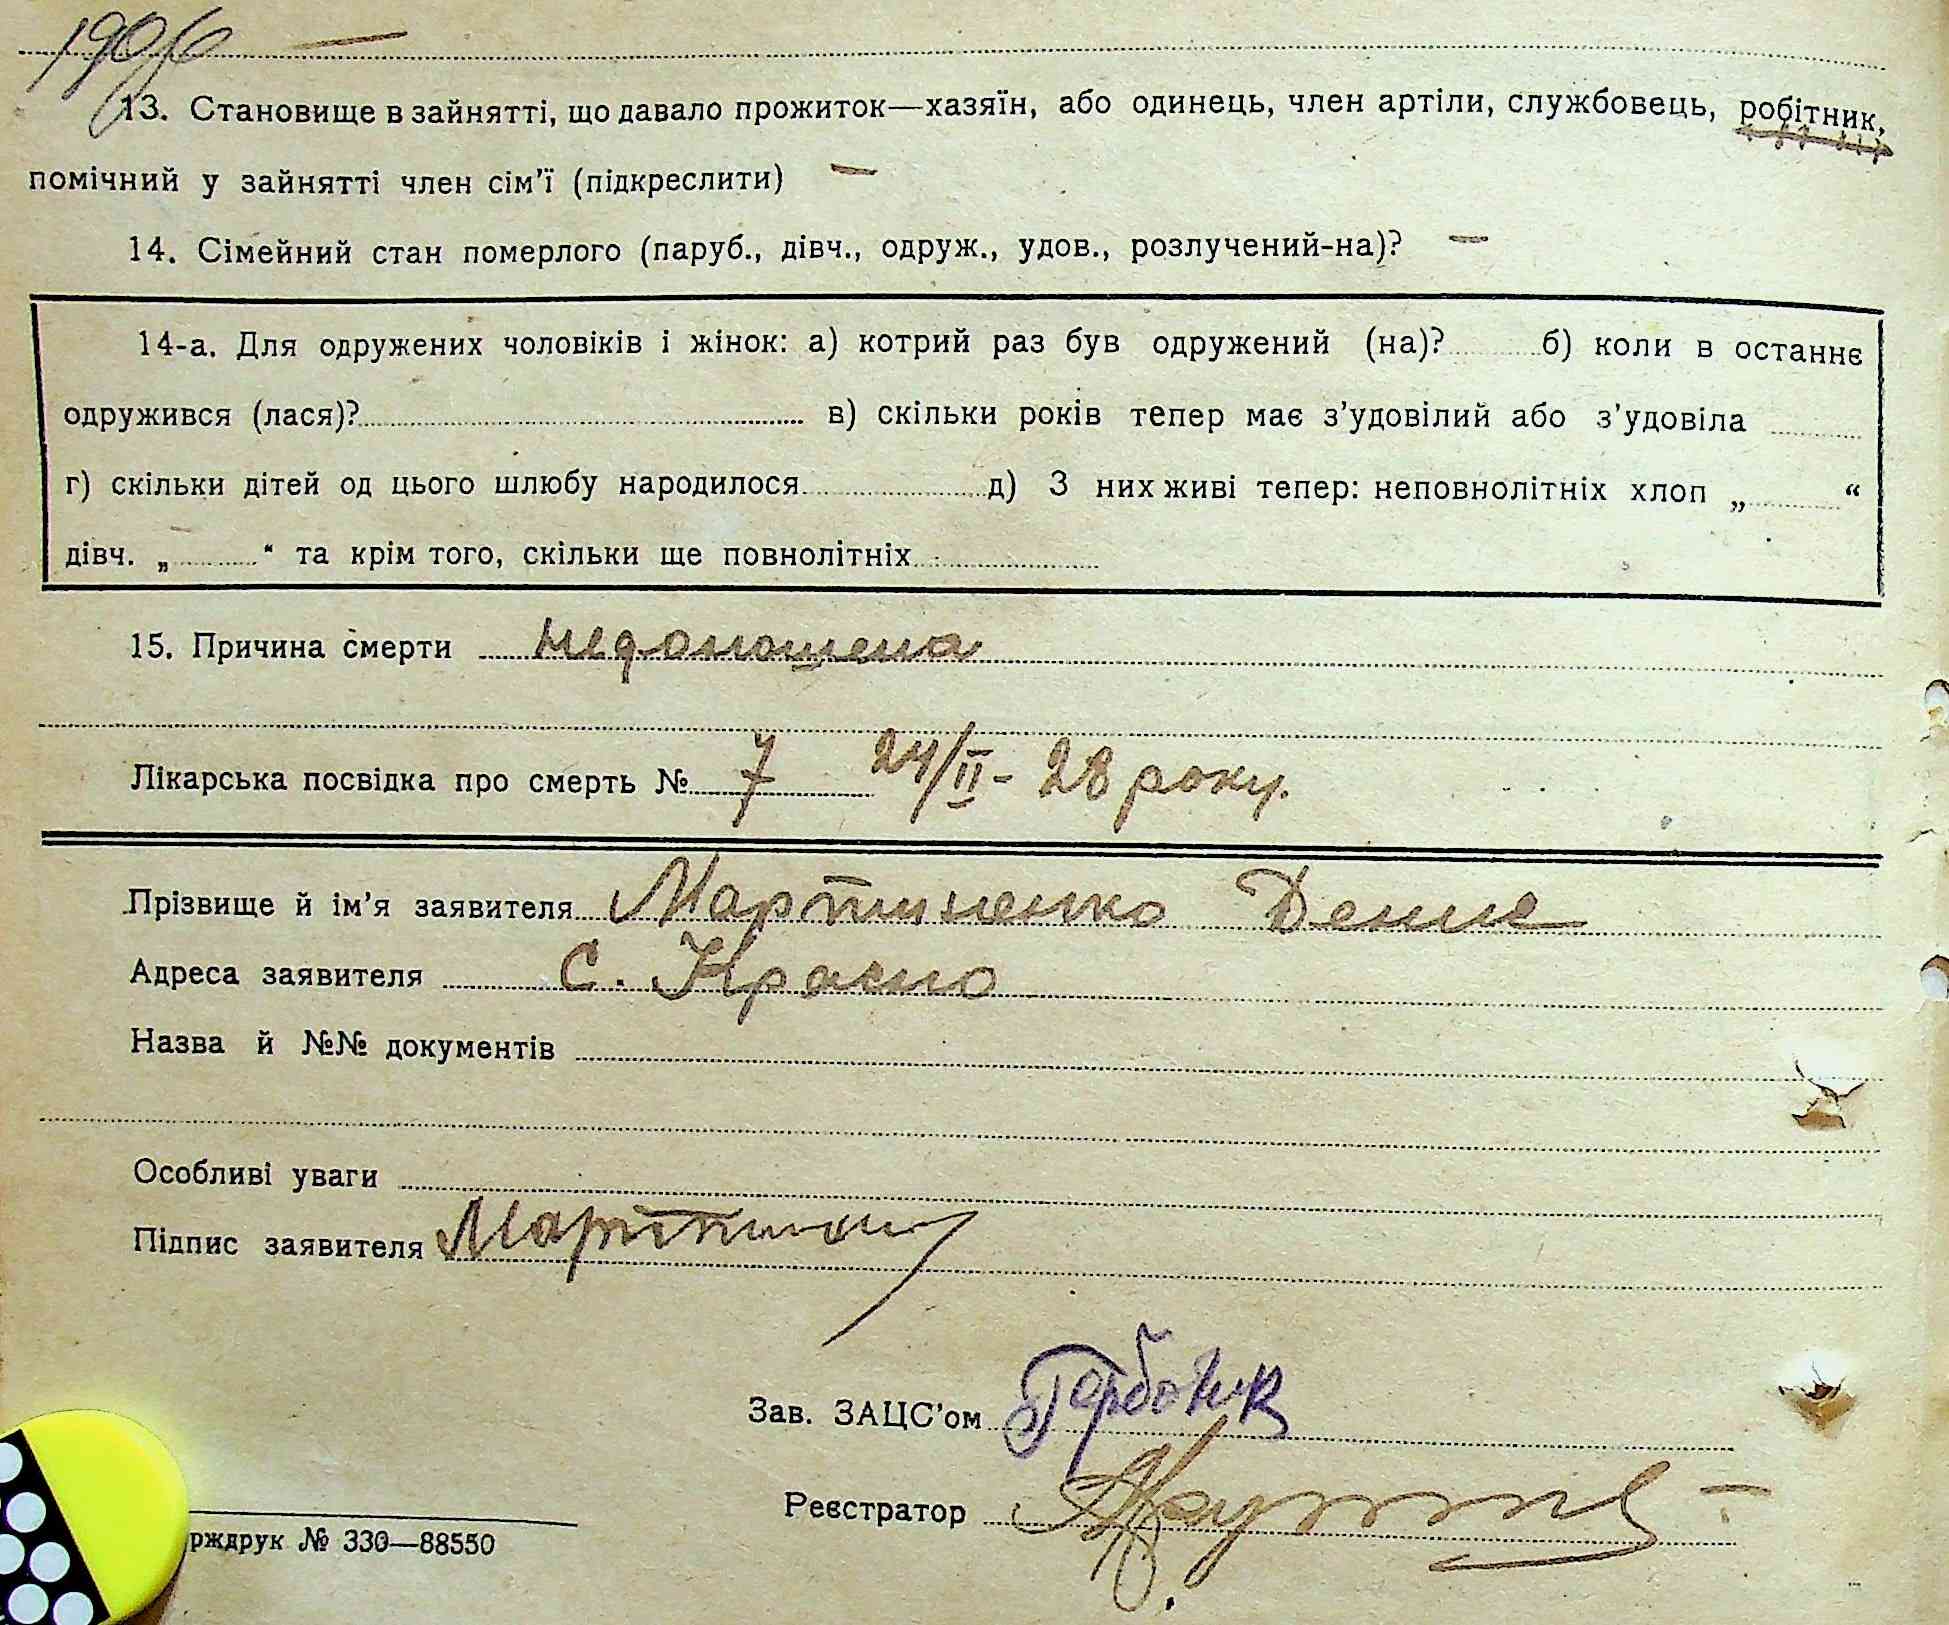 1906 —
13. Становище в зайнятті, що давало прожиток—хазяїн, або одинець, член артіли, службовець, робітник,
помічний у зайнятті член сім'ї (підкреслити) —
14. Сімейний стан померлого (паруб., дівч., одруж., удов., розлучений-на)? —
14-а. Для одружених чоловіків і жінок: а) котрий раз був одружений (на)? б) коли в останнє
одружився (лася)? в) скільки років тепер має з'удовілий або з'удовіла
г) скільки дітей од цього шлюбу народилося д) З них живі тепер: неповнолітніх хлоп „ “
дівч. „ “ та крім того, скільки ще повнолітніх
15. Причина смерти недоношена
Лікарська посвідка про смерть № 7 24/II - 28 року.
Прізвище й ім'я заявителя Мартиненко Денис
Адреса заявителя с. Красно
Назва й №№ документів
Особливі уваги
Підпис заявителя
Зав. ЗАЦС'ом
Реєстратор
рждрук № 330—88550